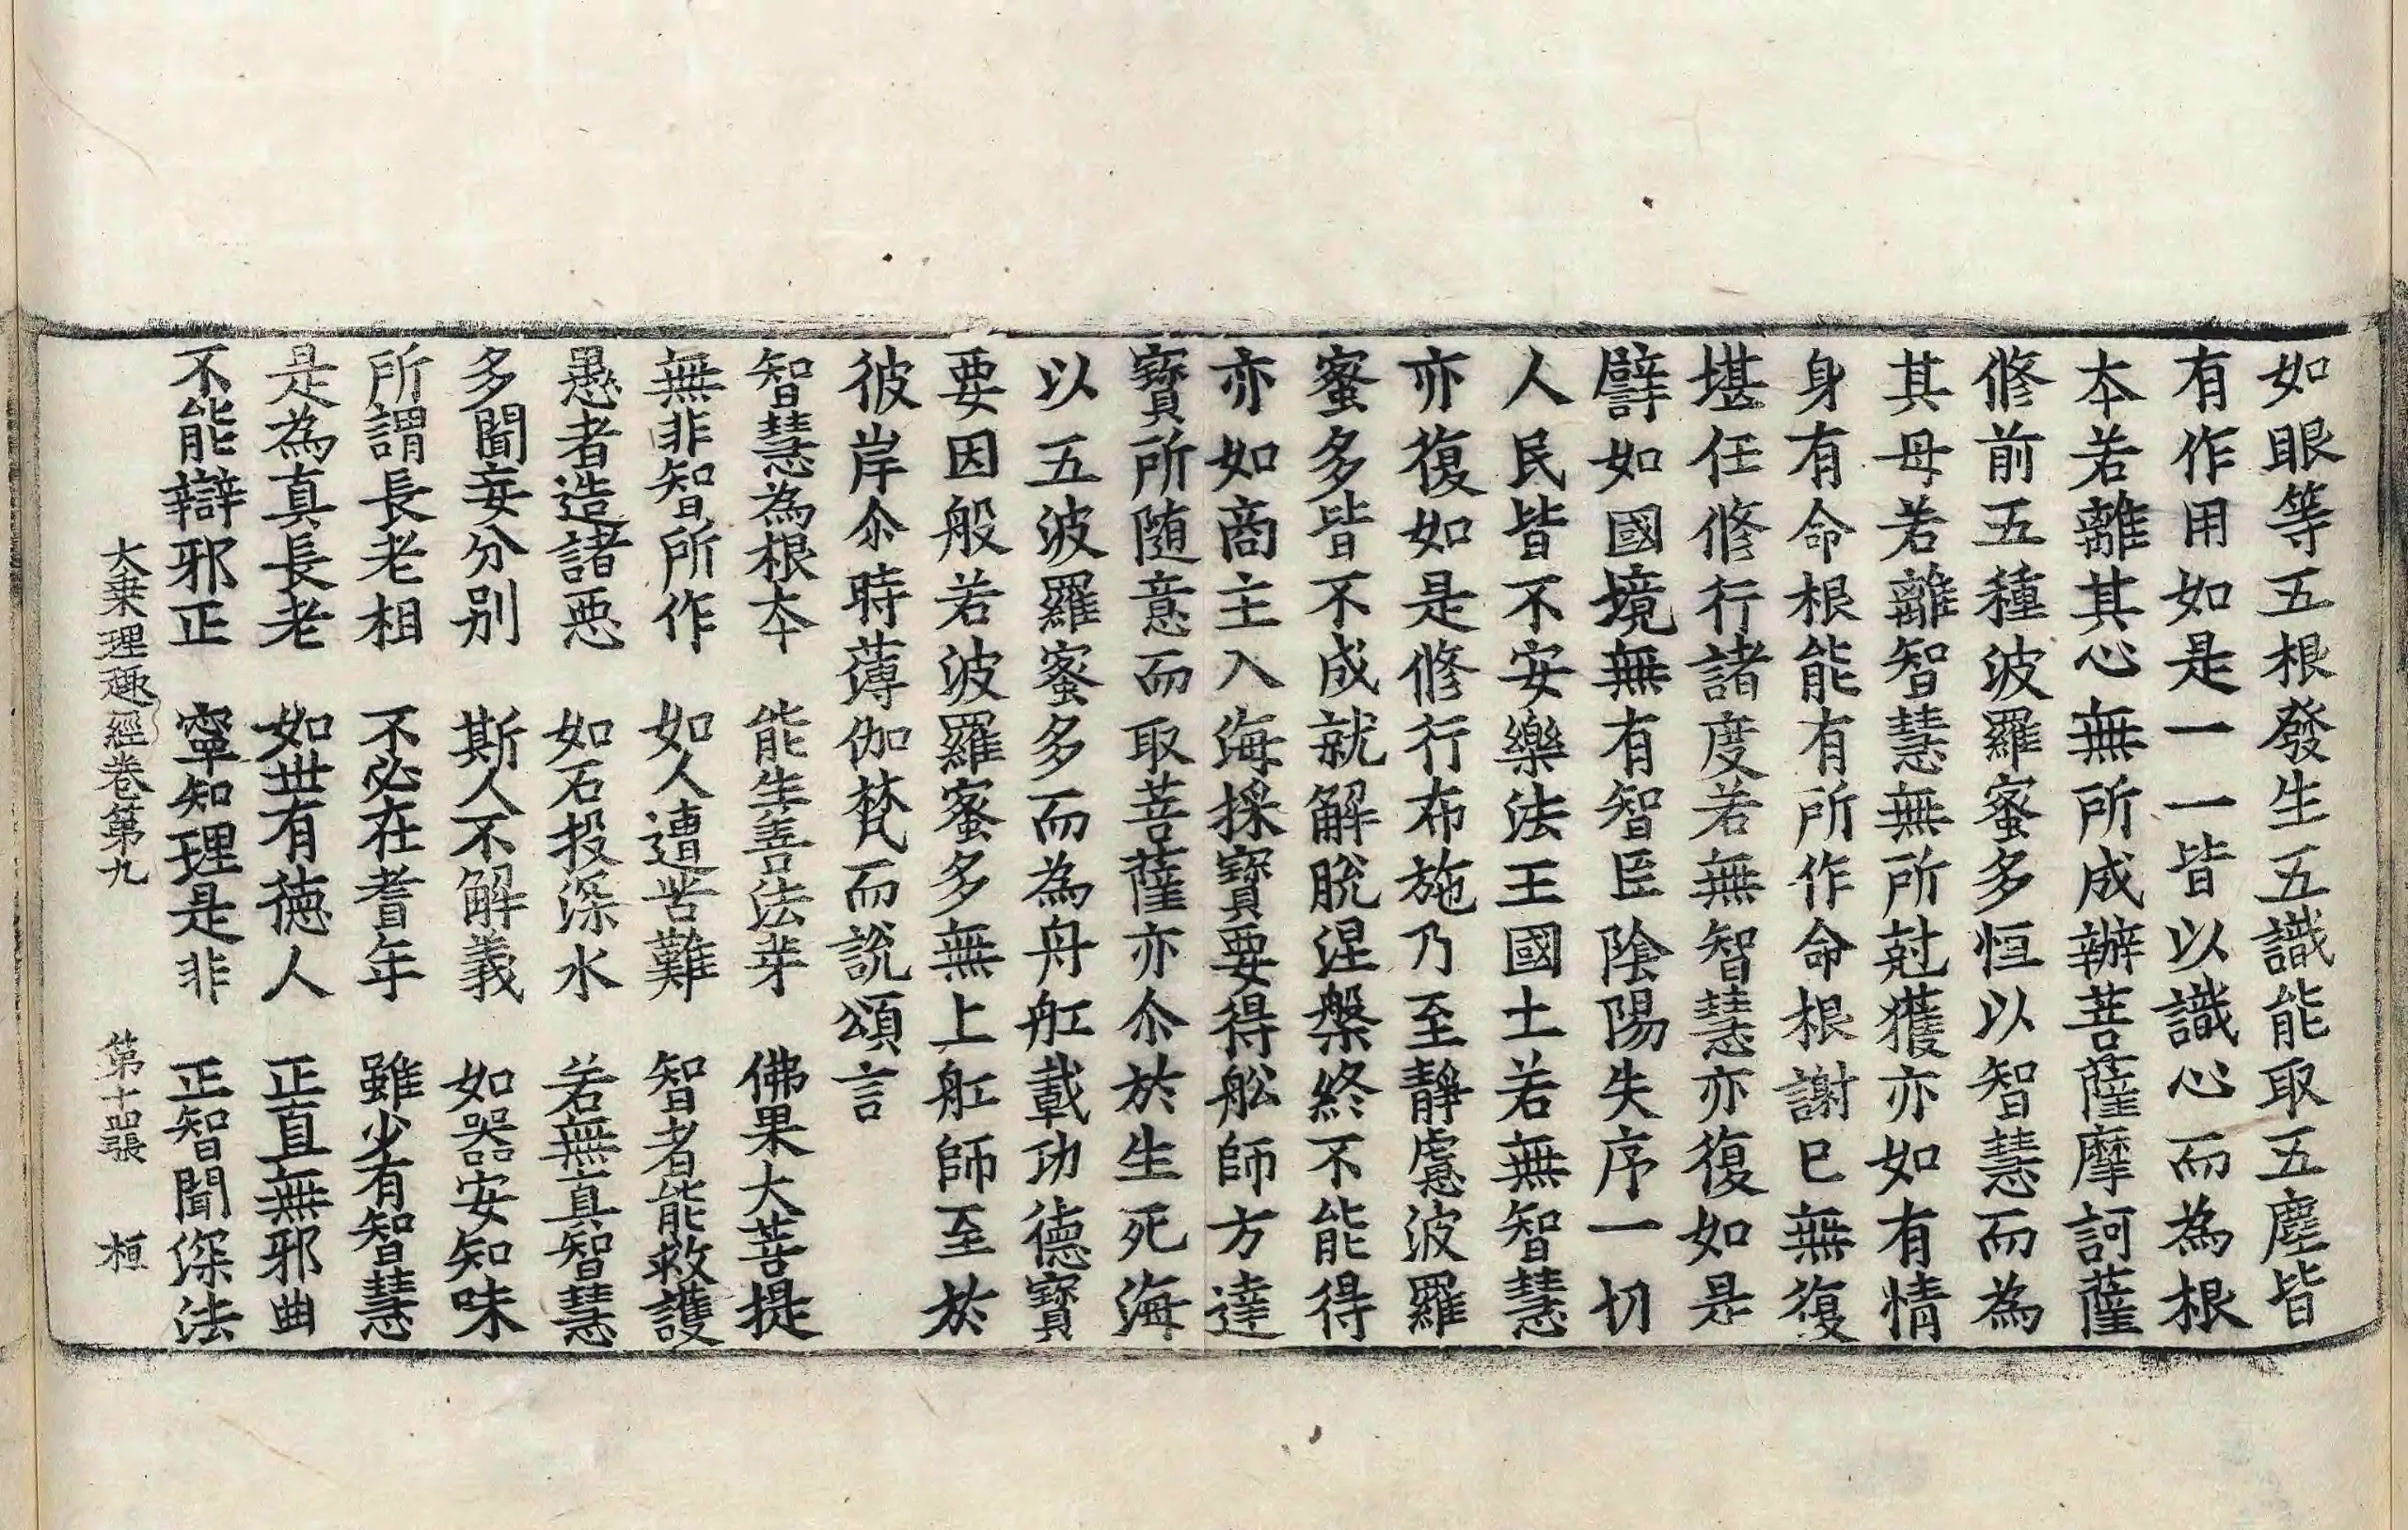 如眼等五根發生五識能取五塵皆
有作用如是一一皆以識心而為根
本若離其心無所成辦菩薩摩訶薩
修前五種波羅蜜多恒以智慧而為
其母若離智慧無所尅獲亦如有情
身有命根能有所作命根謝已無復
堪任修行諸度若無智慧亦復如是
譬如國境無有智臣陰陽失序一切
人民皆不安樂法王國土若無智慧
亦復如是修行布施乃至靜慮波羅
蜜多皆不成就解脫涅槃終不能得
亦如商主入海採寶要得舩師方達
寶所隨意而取菩薩亦尒於生死海
以五波羅蜜多而為舟舡載功德寶
要因般若波羅蜜多無上舡師至於
彼岸尒時薄伽梵而說頌言
智慧為根本　能生善法芽　佛果大菩提
無非智所作　如人遭苦難　智者能救護
愚者造諸惡　如石投深水　若無真智慧
多聞妄分別　斯人不解義　如器安知味
所謂長老相　不必在耆年　雖少有智慧
是為真長老　如世有德人　正直無邪曲
不能辯邪正　寧知理是非　正智聞深法
大乘理趣經卷第九　第十四張　桓